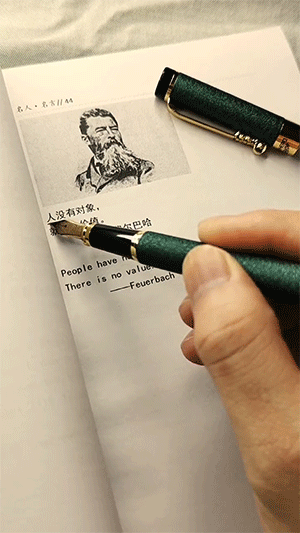 名人·名言//44
人没有对象,
价值。 尔巴哈
People have
There is no value
——Feuerbach